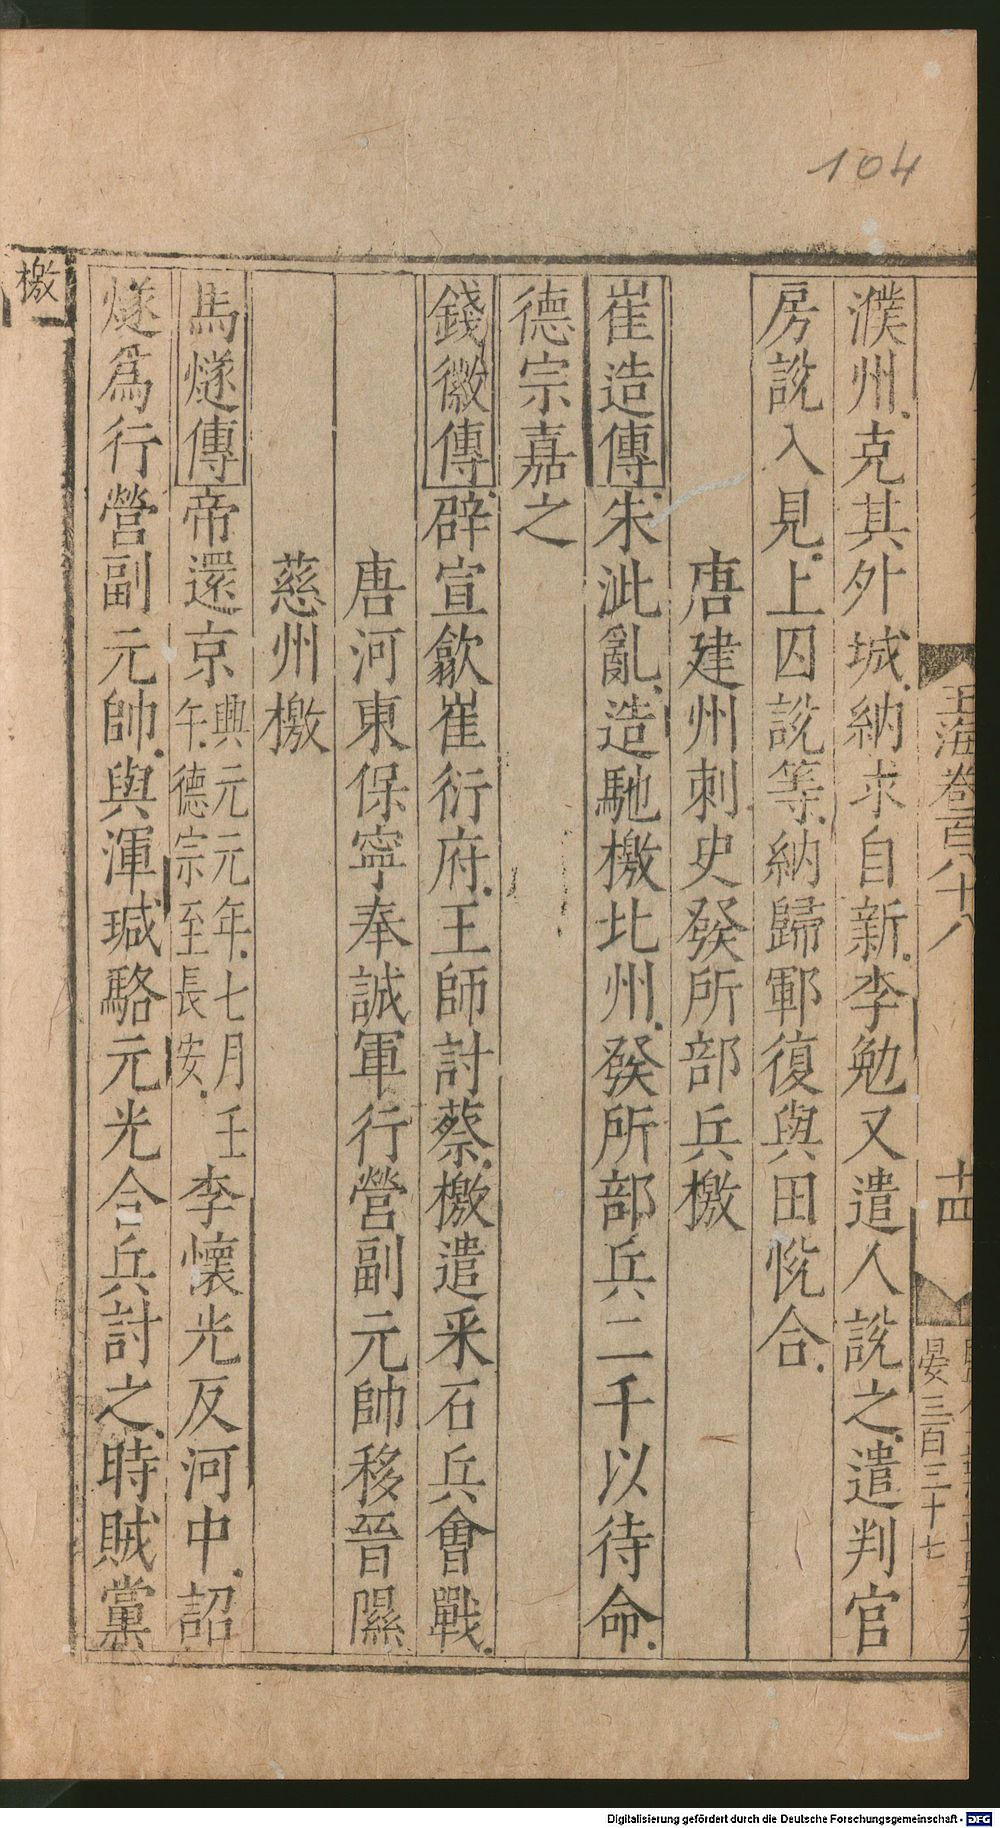 104
玉海卷百八十八
十四
晏三百三十七
濮州克其外城納求自新李勉又遣人說之遣判官
房說入見上囚說等納歸鄆復與田悅合
唐建州刺史發所部兵檄
崔造傳朱泚亂造馳檄比州發所部兵二千以待命
德宗嘉之
錢徽傳辟宣歙崔衍府王師討蔡檄遣采石兵會戰
唐河東保寧奉誠軍行營副元帥移晉隰
慈州檄
馬燧傳帝還京興元元年七月壬午德宗至長安李懷光反河中詔
燧爲行營副元帥與渾瑊駱元光合兵討之時賊黨
檄
Digitalisierung gefördert durch die Deutsche Forschungsgemeinschaft - DFG